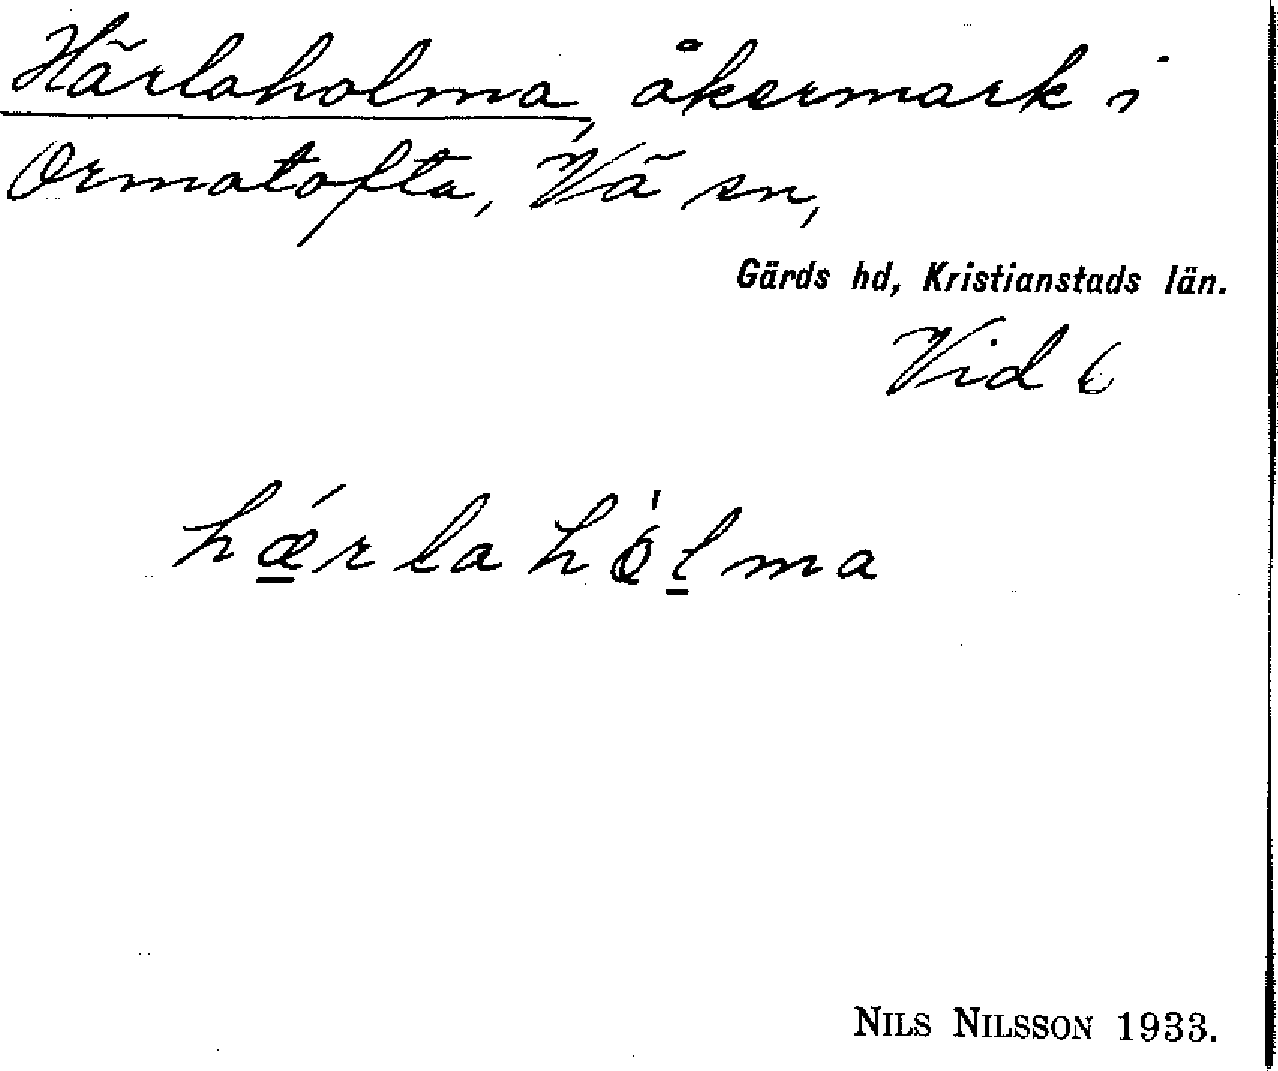 Härlaholma, åkermark i
Ormatofta, Vä sn,
Gärds hd, Kristianstads län.
Vid 6
hǽrla hòlma
NILS NILSSON 1933.